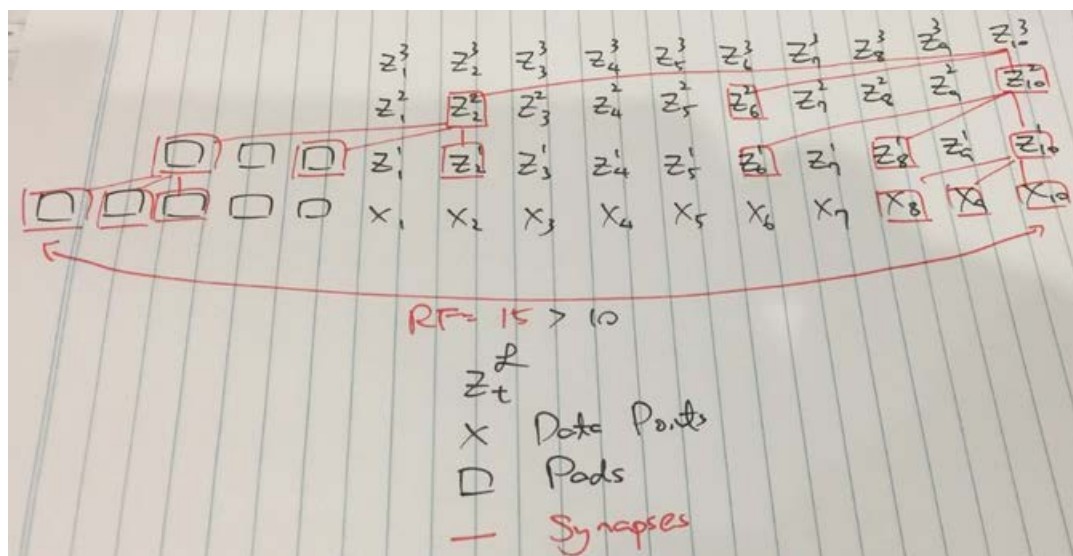 Z₁³ Z₂³ Z₃³ Z₄³ Z₅³ Z₆³ Z₇³ Z₈³ Z₉³ Z₁₀³
Z₁² Z₂² Z₃² Z₄² Z₅² Z₆² Z₇² Z₈² Z₉² Z₁₀²
Z₁¹ Z₂¹ Z₃¹ Z₄¹ Z₅¹ Z₆¹ Z₇¹ Z₈¹ Z₉¹ Z₁₀¹
X₁ X₂ X₃ X₄ X₅ X₆ X₇ X₈ X₉ X₁₀
RF= 15 > 10
Zₜˡ
X Data Points
□ Pads
— Synapses